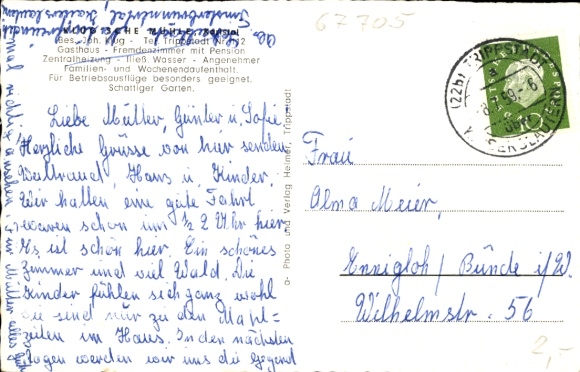 67705
KLUG'SCHE MÜHLE, Karlstal
Bes. Joh. Klug - Tel. Trippstadt Nr. 212
Gasthaus - Fremdenzimmer mit Pension
Zentralheizung - fließ. Wasser - Angenehmer
Familien- und Wochenendaufenthalt.
Für Betriebsausflüge besonders geeignet.
Schattiger Garten.
Liebe Mutter, Günter u. Sofie,
Herzliche Grüsse von hier senden
Waltraud, Hans u. Kinder.
Wir hatten eine gute Fahrt
waren schon um ½ 2 Uhr hier.
Es ist schön hier. Ein schönes
Zimmer und viel Wald. Die
Kinder fühlen sich ganz wohl
sie sind nur zu den Mahl=
zeiten im Haus. In den nächsten
Tagen werden wir uns die Gegend
mal ansehen
Mutter alles
a- Photo und Verlag Heimer, Trippstadt
(22b) TRIPPSTADT
59.-6
KAISERSLAUTERN
Frau
Alma Meier,
Ennigloh / Bünde i/W.
Wilhelmstr. 56
2,-